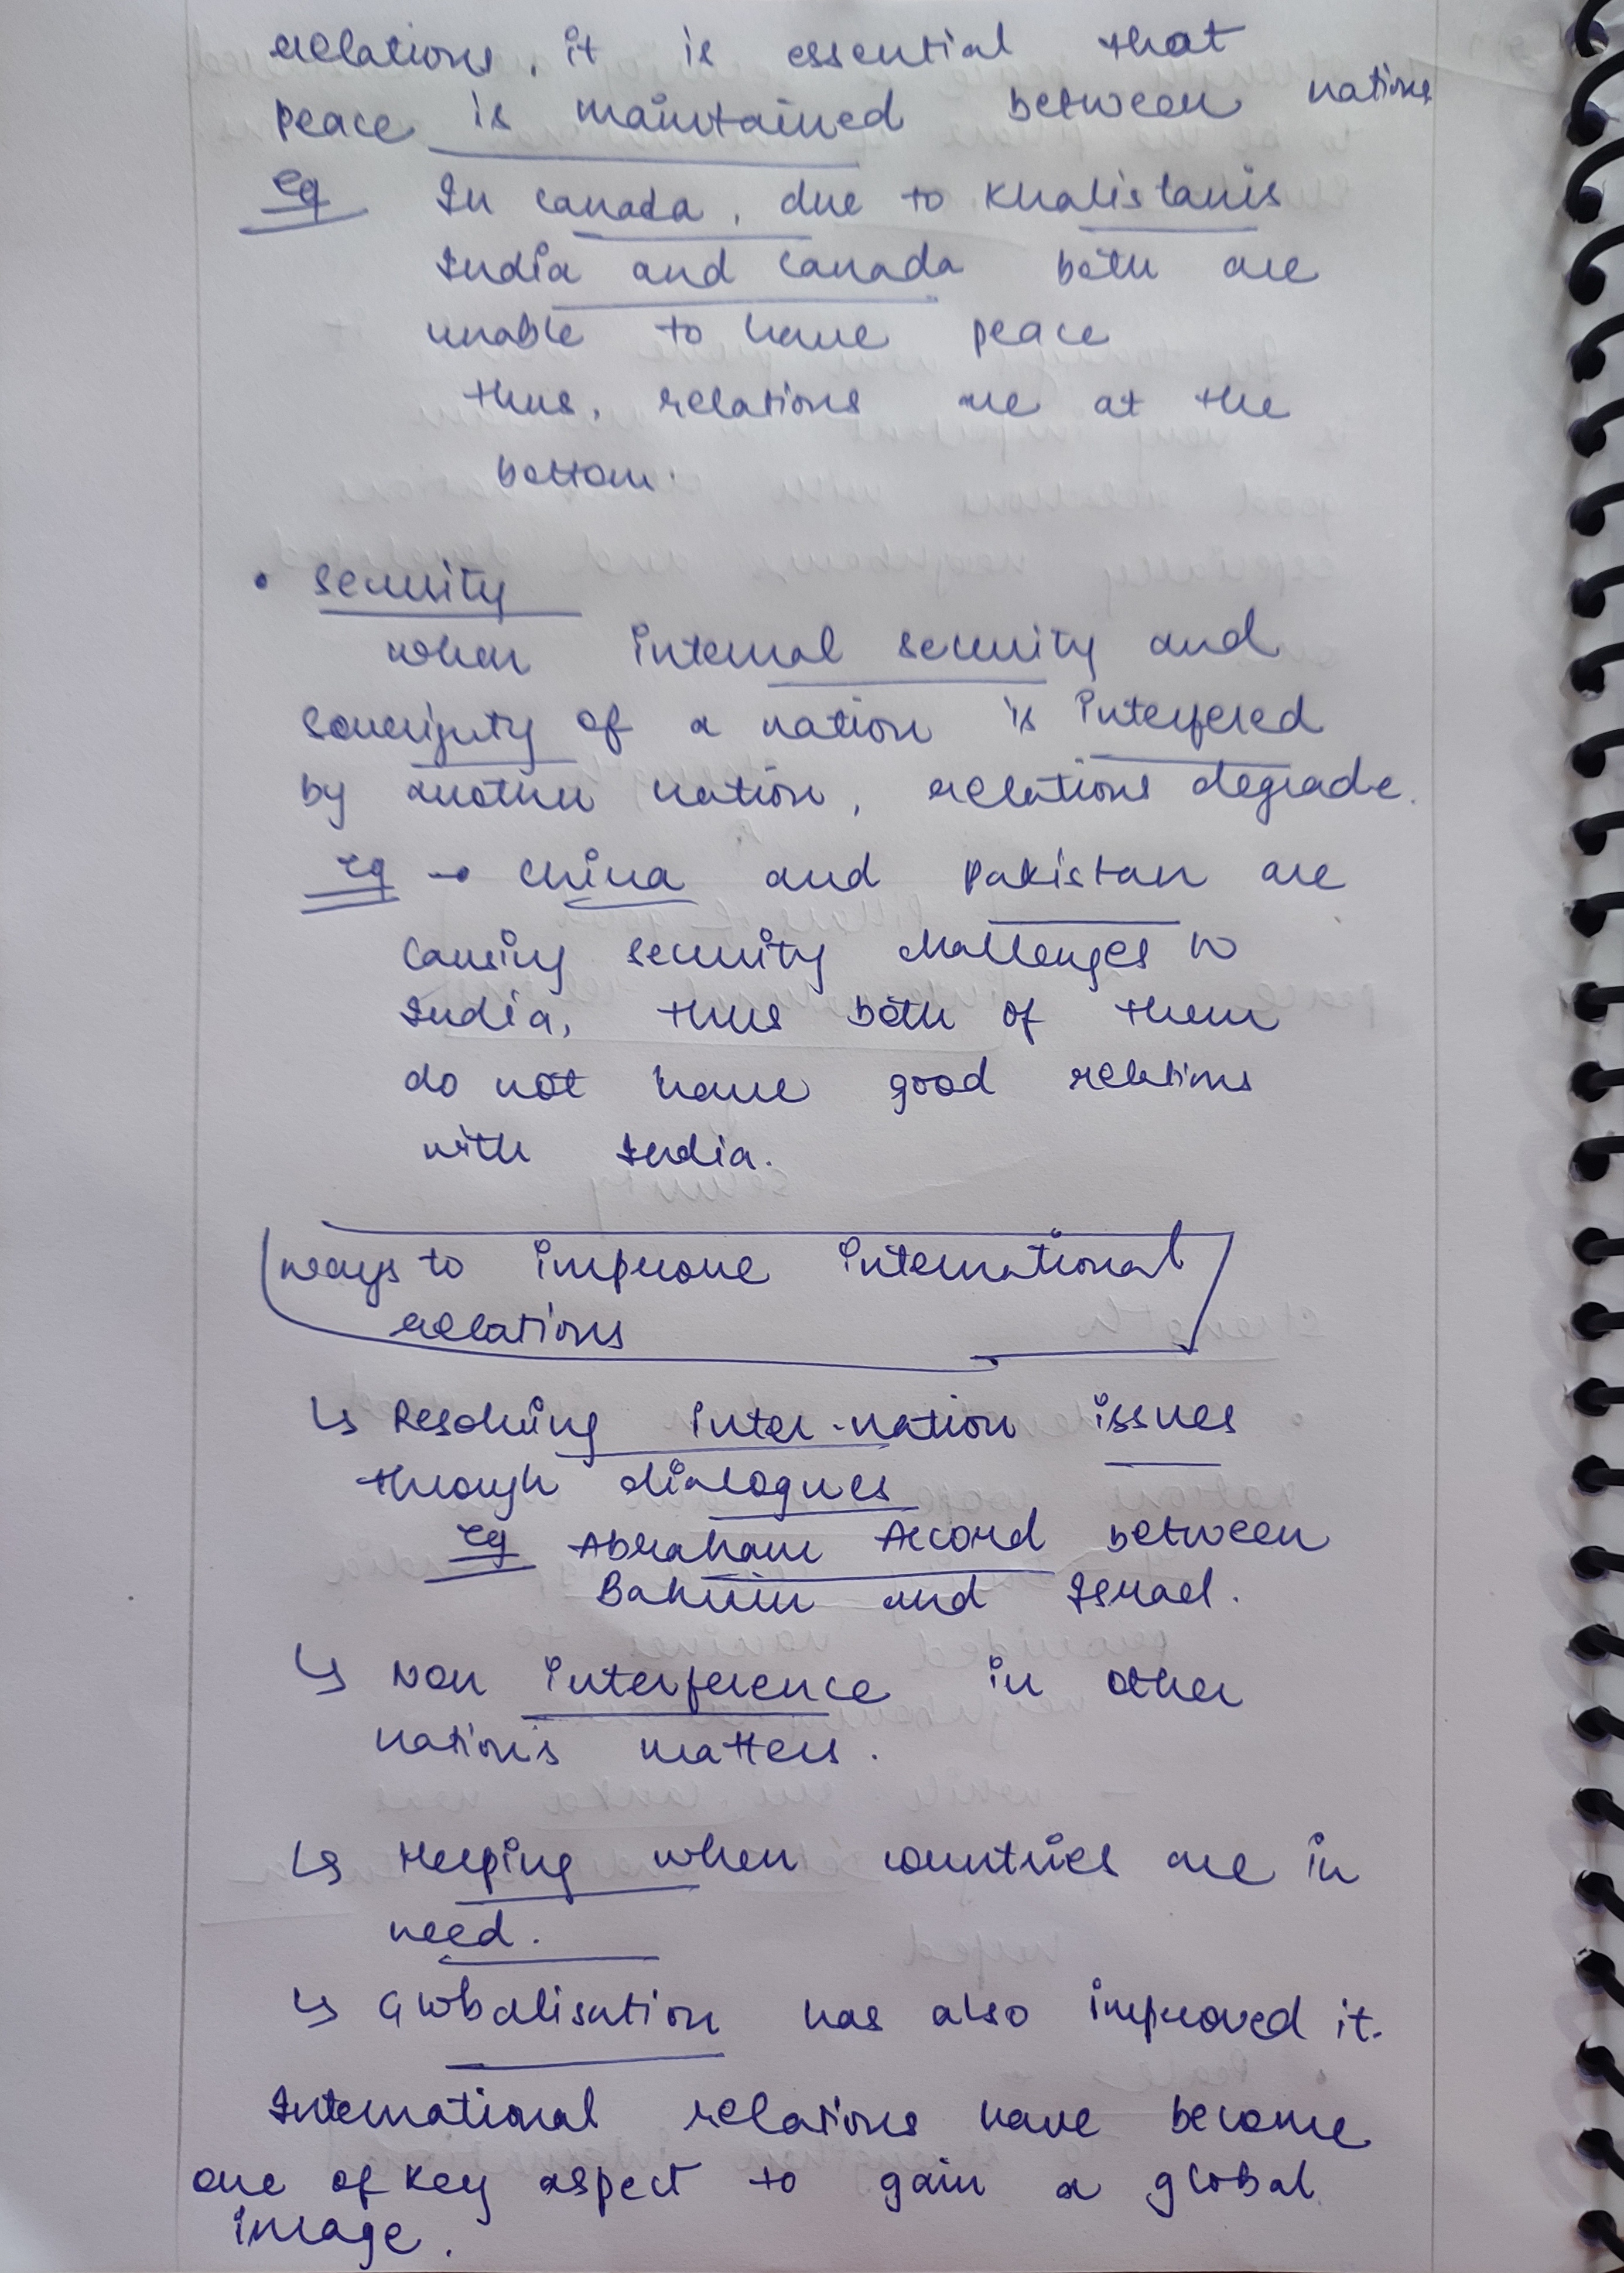 relations, it is essential that
peace is maintained between nations
eg In Canada, due to Khalistanis
India and Canada both are
unable to have peace
thus, relations are at the
bottom.
• Security
when internal security and
soverignty of a nation is interfered
by another nation, relations degrade.
eg → China and Pakistan are
causing security challenges to
India, thus both of them
do not have good relations
with India.
ways to improve international
relations
↳ Resolving inter-nation issues
through dialogues
eg Abraham Accord between
Bahrain and Israel.
↳ Non interference in other
nation's matters.
↳ Helping when countries are in
need.
↳ Globalisation has also improved it.
International relations have become
one of key aspect to gain a global
image.